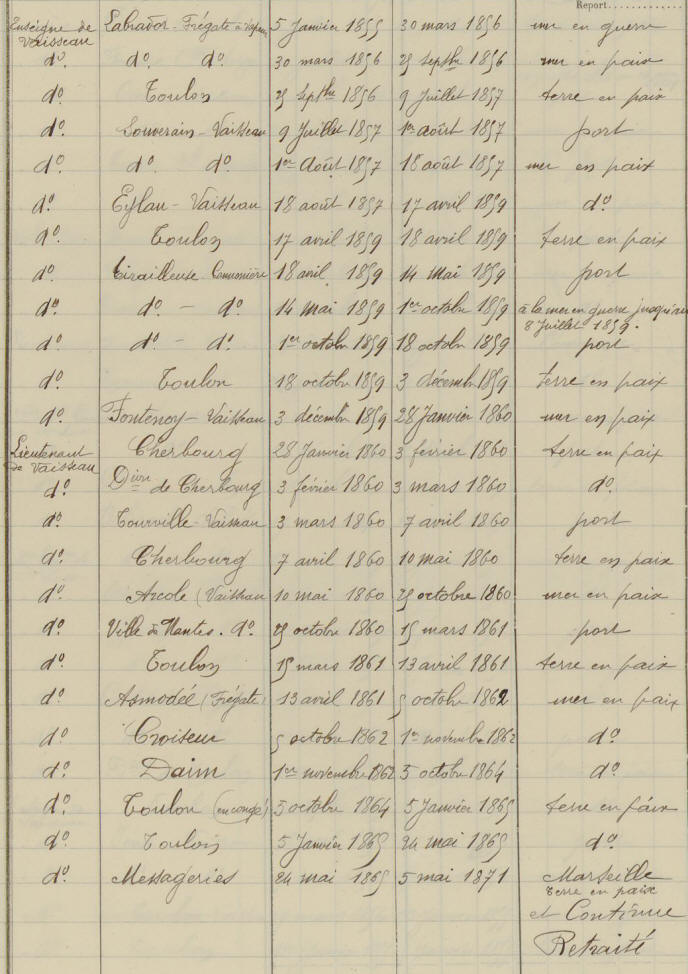 Report
Enseigne de Vaisseau Labrador - Frégate à Vapeur 5 Janvier 1855 30 mars 1856 mer en guerre
do. do. do. 30 mars 1856 25 septbre 1856 mer en paix
do. Toulon 25 septbre 1856 9 Juillet 1857 terre en paix
do. Souverain - Vaisseau 9 Juillet 1857 1er août 1857 port
do. do. do. 1er Août 1857 18 août 1857 mer en paix
do. Eylau - Vaisseau 18 août 1857 17 avril 1859 do.
do. Toulon 17 avril 1859 18 avril 1859 terre en paix
do. Tirailleuse Canonnière 18 avril 1859 14 Mai 1859 port
do. do. - do. 14 mai 1859 1er octobre 1859 à la mer en guerre jusqu'au
8 Juillet 1859.
do. do. - do. 1er octobre 1859 18 octobre 1859 port
do. Toulon 18 octobre 1859 3 décembre 1859 terre en paix
do. Fontenoy - Vaisseau 3 décembre 1859 28 Janvier 1860 mer en paix
Lieutenant de Vaisseau Cherbourg 28 Janvier 1860 3 février 1860 terre en paix
do. Dion de Cherbourg 3 février 1860 3 mars 1860 do.
do. Tourville - Vaisseau 3 mars 1860 7 avril 1860 port
do. Cherbourg 7 avril 1860 10 mai 1860 terre en paix
do. Arcole (Vaisseau 10 mai 1860 25 octobre 1860 mer en paix
do. Ville de Nantes. do. 25 octobre 1860 15 mars 1861 port
do. Toulon 15 mars 1861 13 avril 1861 terre en paix
do. Asmodée (Frégate) 13 avril 1861 5 octobre 1862 mer en paix
do. Croiseur 5 octobre 1862 1er novembre 1862 do.
do. Daim 1er novembre 1862 5 octobre 1864 do.
do. Toulon (en congé) 5 octobre 1864 5 Janvier 1865 terre en paix
do. Toulon 5 Janvier 1865 24 mai 1865 do.
do. Messageries 24 mai 1865 5 mai 1871 Marseille
terre en paix
et Continue
Retraité